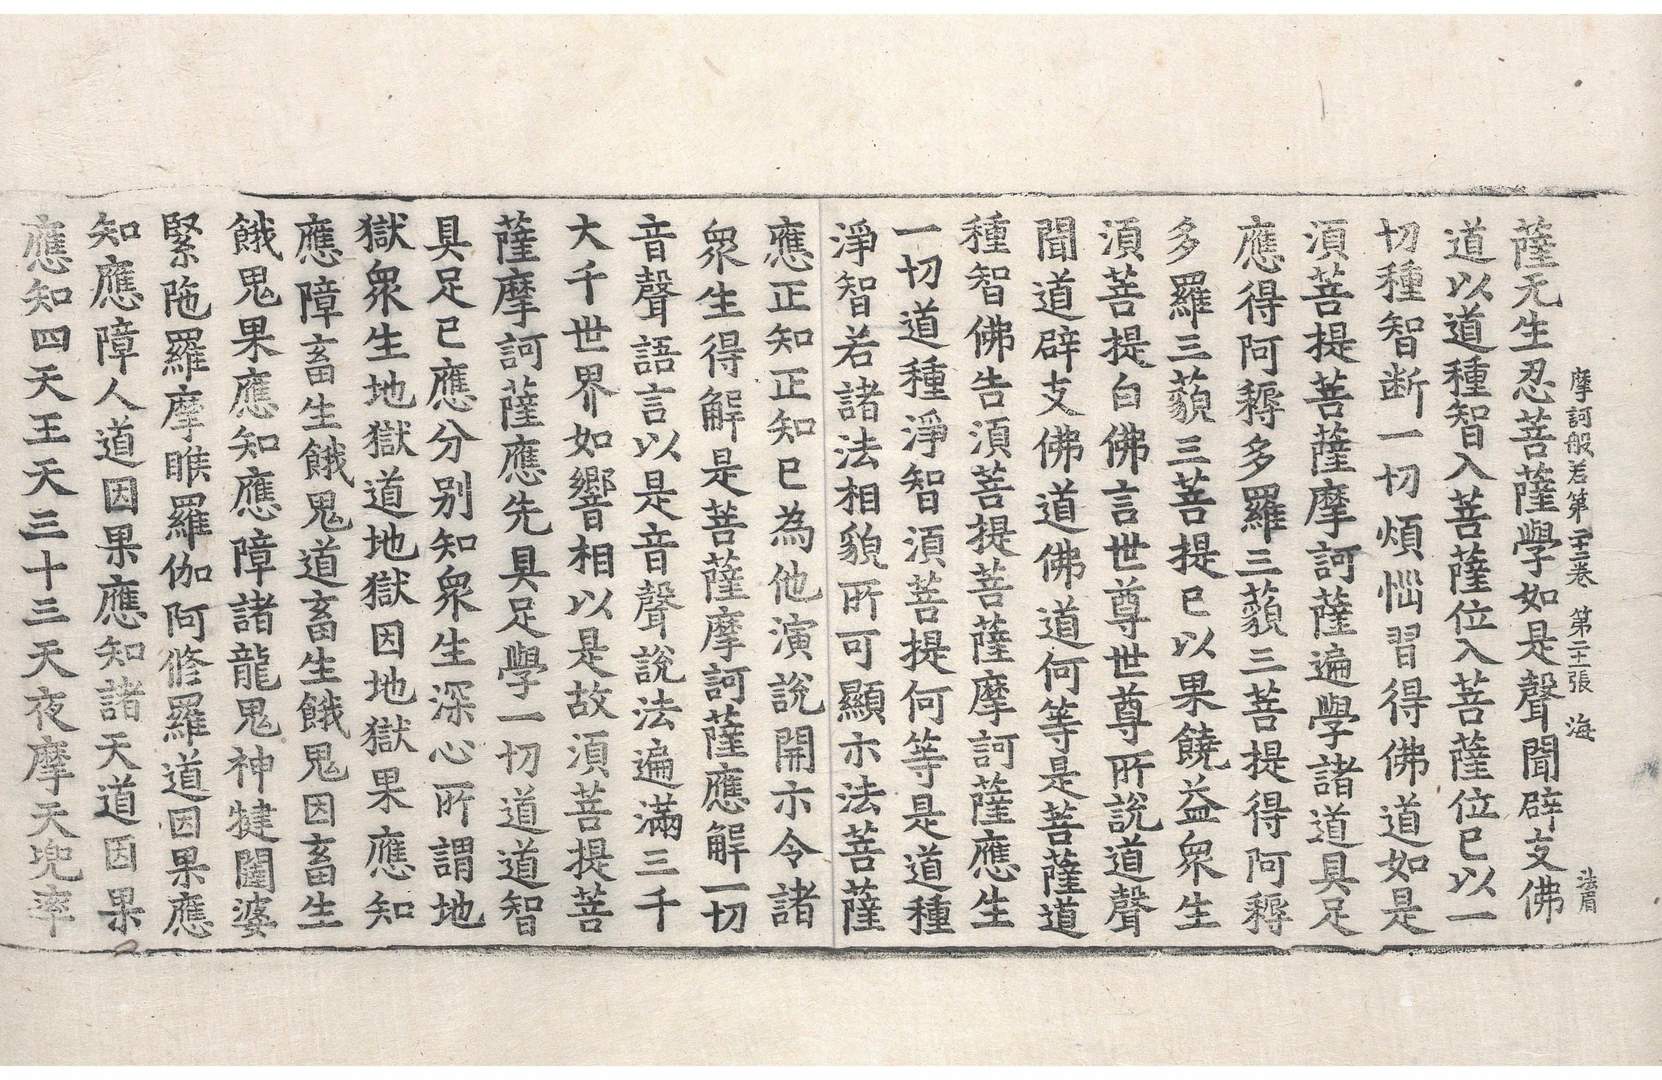 摩訶般若第二十二卷 第二十一張 海 法眉
薩无生忍菩薩學如是聲聞辟支佛
道以道種智入菩薩位入菩薩位已以一
切種智断一切煩惱習得佛道如是
湏菩提菩薩摩訶薩遍學諸道具足
應得阿耨多羅三藐三菩提得阿耨
多羅三藐三菩提已以果饒益衆生
湏菩提白佛言世尊世尊所說道聲
聞道辟支佛道佛道何等是菩薩道
種智佛告湏菩提菩薩摩訶薩應生
一切道種淨智湏菩提何等是道種
淨智若諸法相貌所可顯示法菩薩
應正知正知已為他演說開示令諸
衆生得解是菩薩摩訶薩應解一切
音聲語言以是音聲說法遍滿三千
大千世界如響相以是故湏菩提菩
薩摩訶薩應先具足學一切道道智
具足已應分別知衆生深心所謂地
獄衆生地獄道地獄因地獄果應知
應障畜生餓鬼道畜生餓鬼因畜生
餓鬼果應知應障諸龍鬼神犍闥婆
緊陁羅摩睺羅伽阿修羅道因果應
知應障人道因果應知諸天道因果
應知四天王天三十三天夜摩天兜率